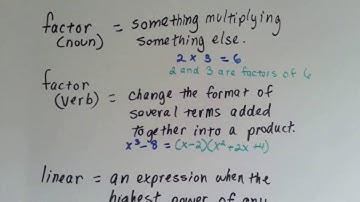 factor = something multiplying
(noun) something else.
2 x 3 = 6
2 and 3 are factors of 6
factor
(verb) = change the format of
several terms added
together into a product.
x³-8 = (x-2)(x²+2x+4)
linear = an expression when the
highest power of any